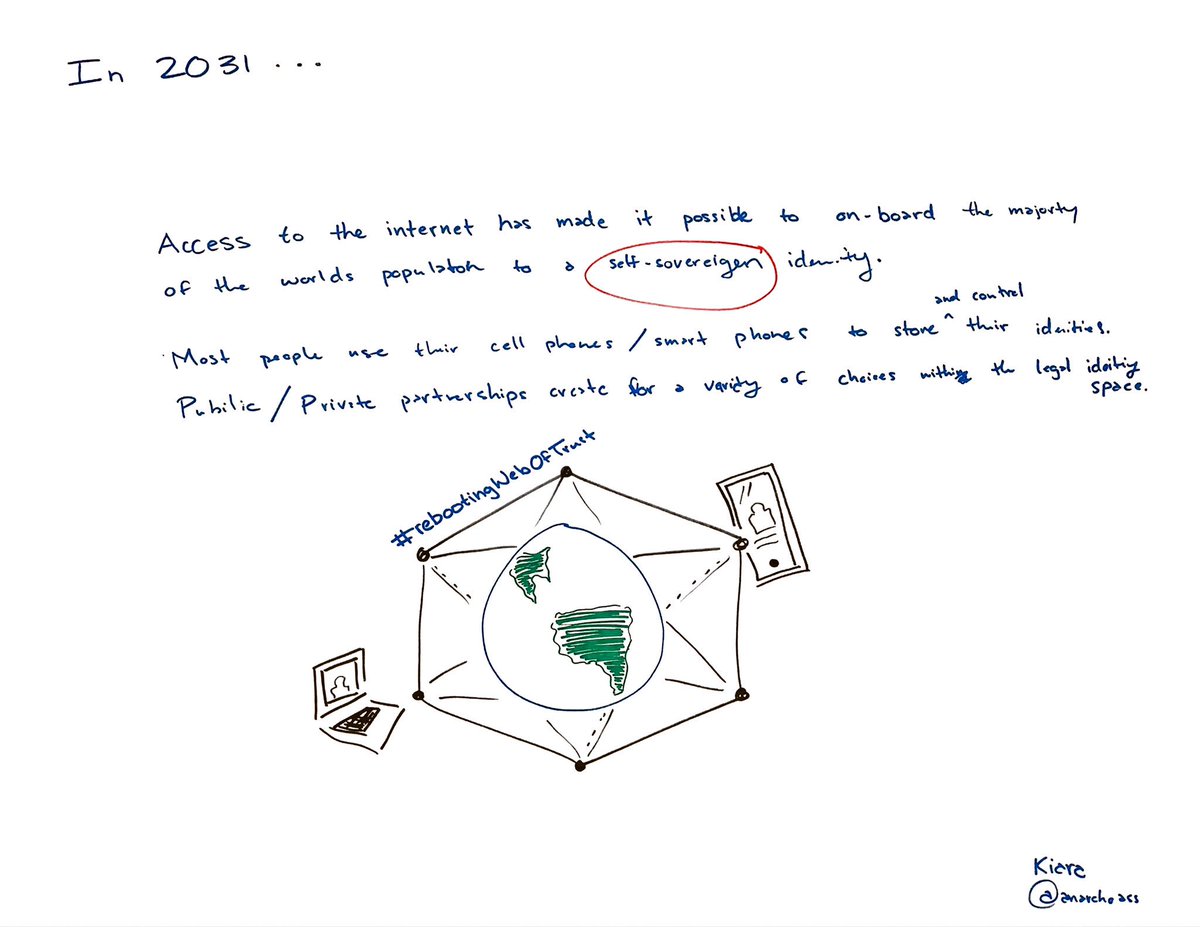 In 2031 ...
Access to the internet has made it possible to on-board the majorty
of the worlds populaton to a self-sovereigen identity.
and control
Most people use their cell phones / smart phones to store ^ their idenities.
Pubilic / Private partnerships create for a varity of choices within the legal
space.
#rebootingWebOfTrust
Kiara
@anarchoass